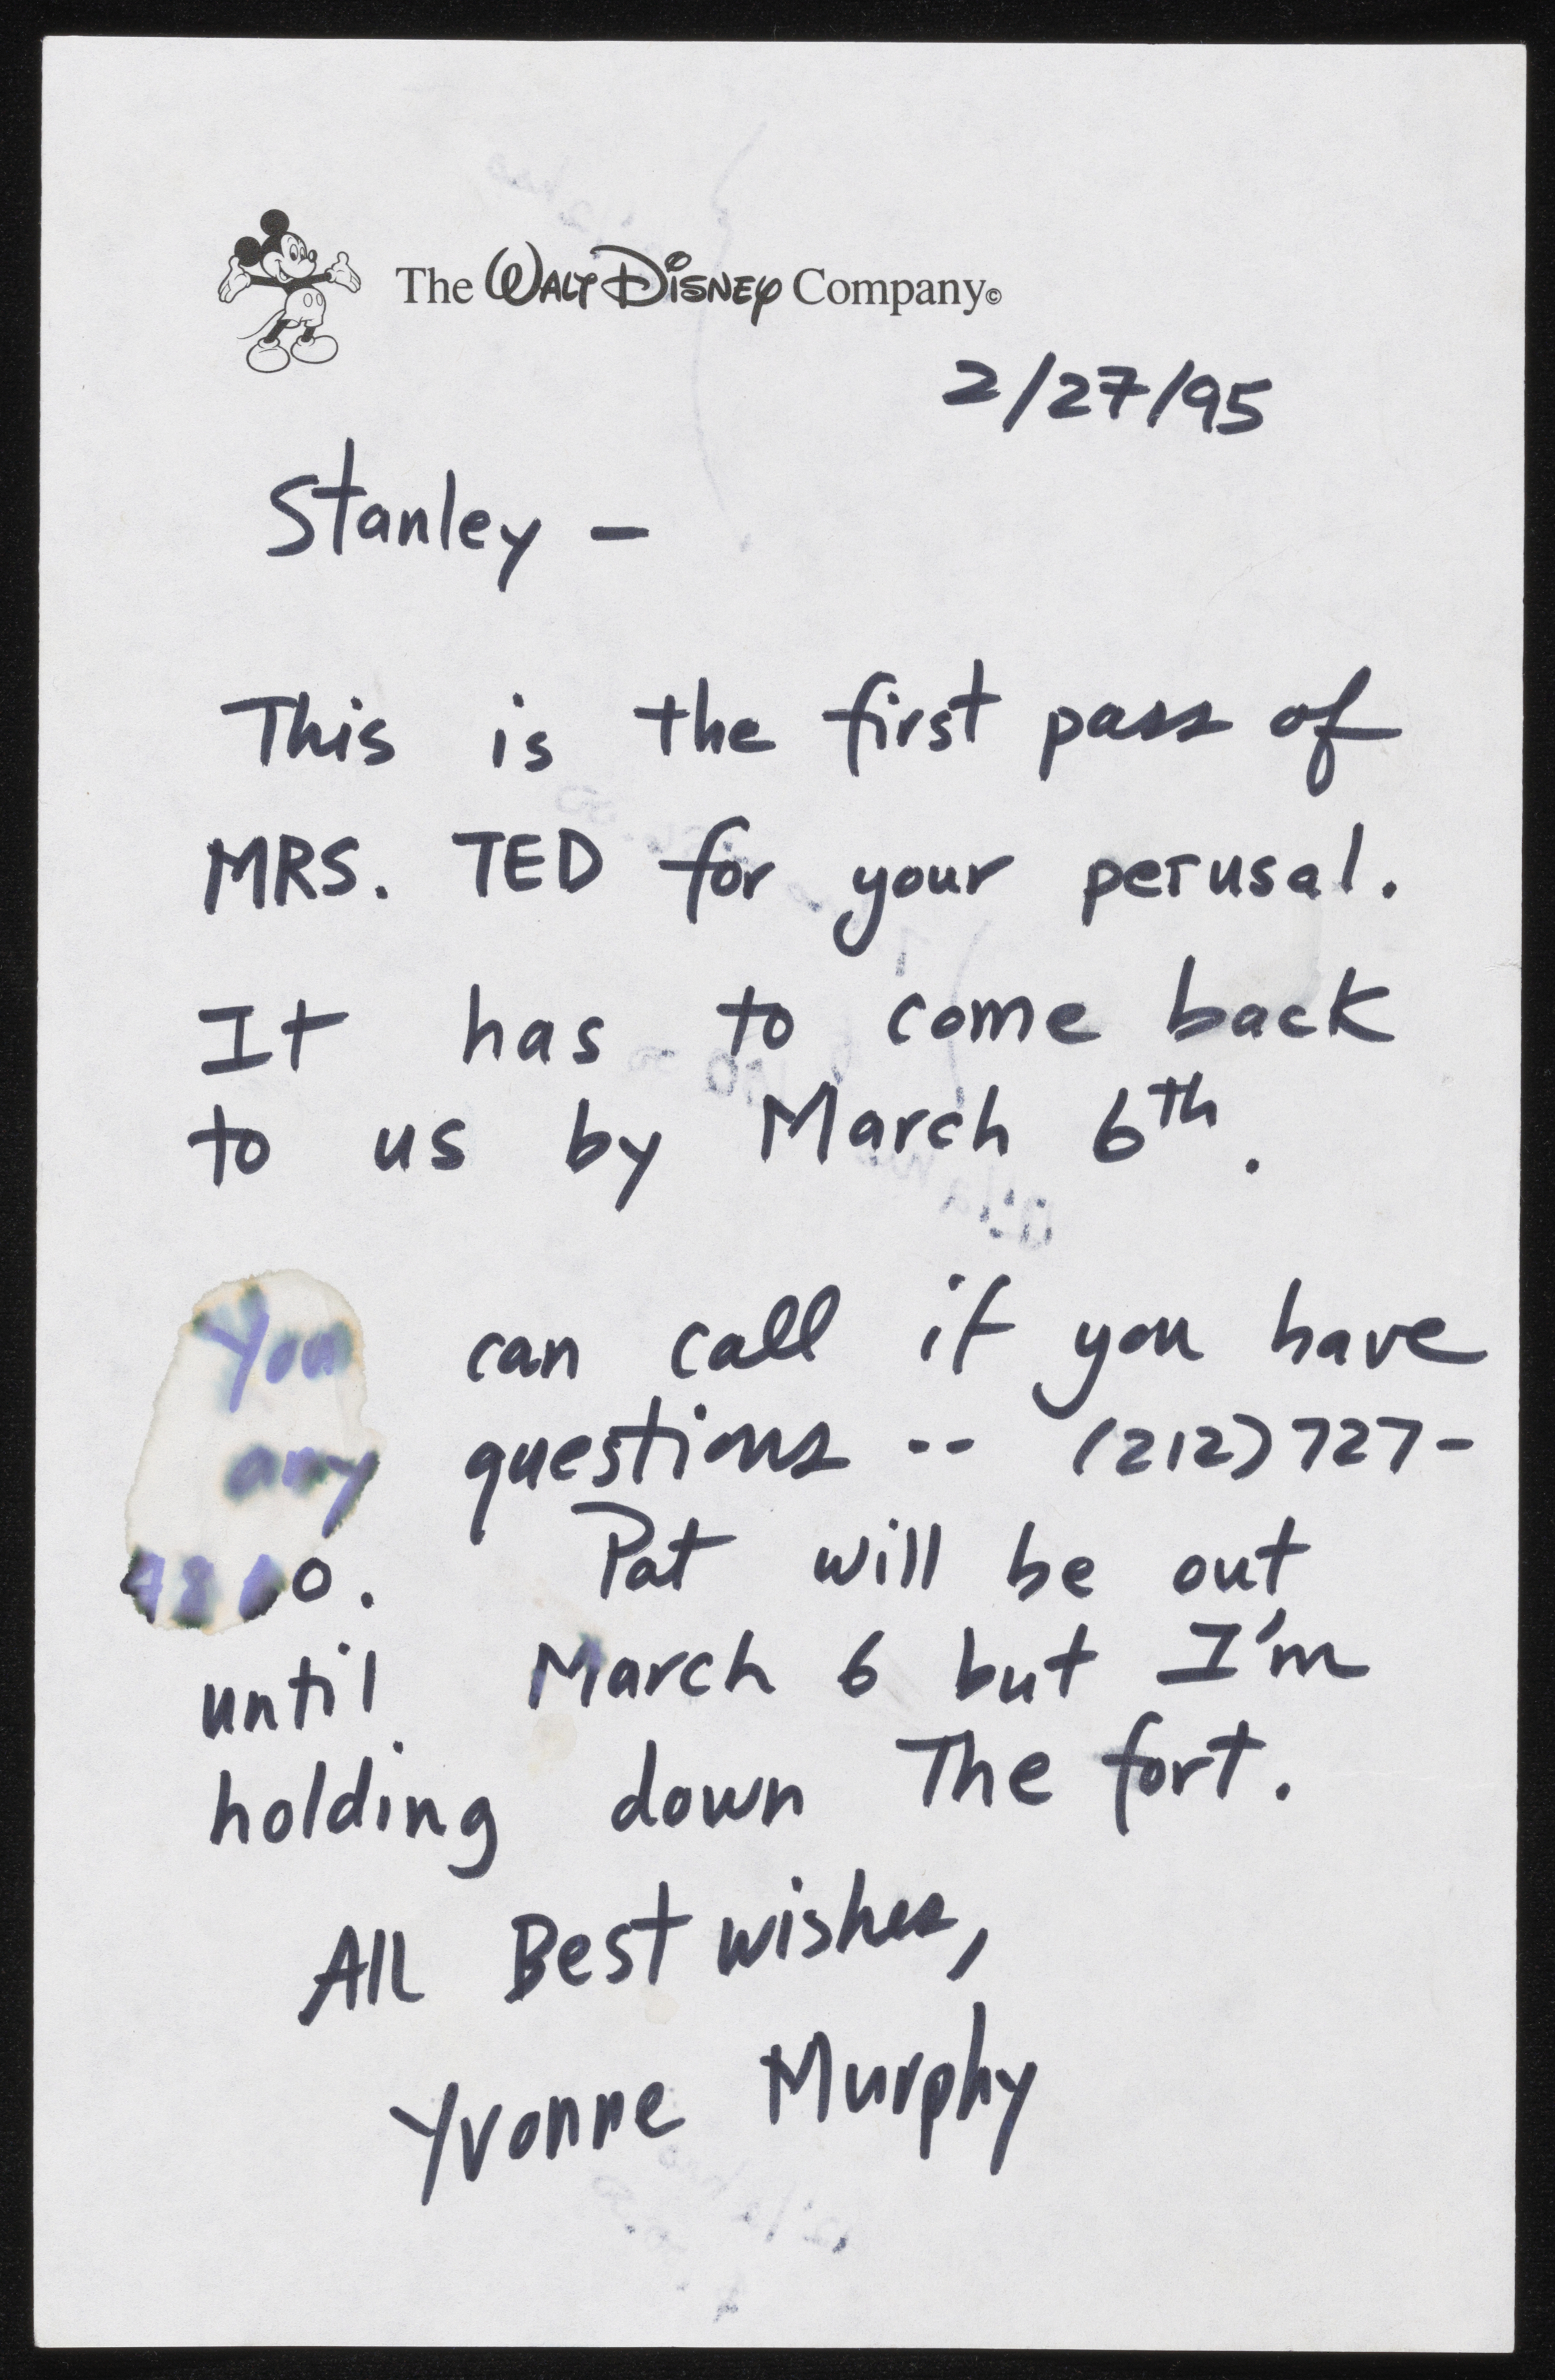 The WALT DISNEY Company©
2/27/95
Stanley –
This is the first pass of
MRS. TED for your perusal.
It has to come back
to us by March 6th.
You can call if you have
any questions -- (212) 727-
Pat will be out
until March 6 but I'm
holding down The fort.
All Best wishes,
Yvonne Murphy